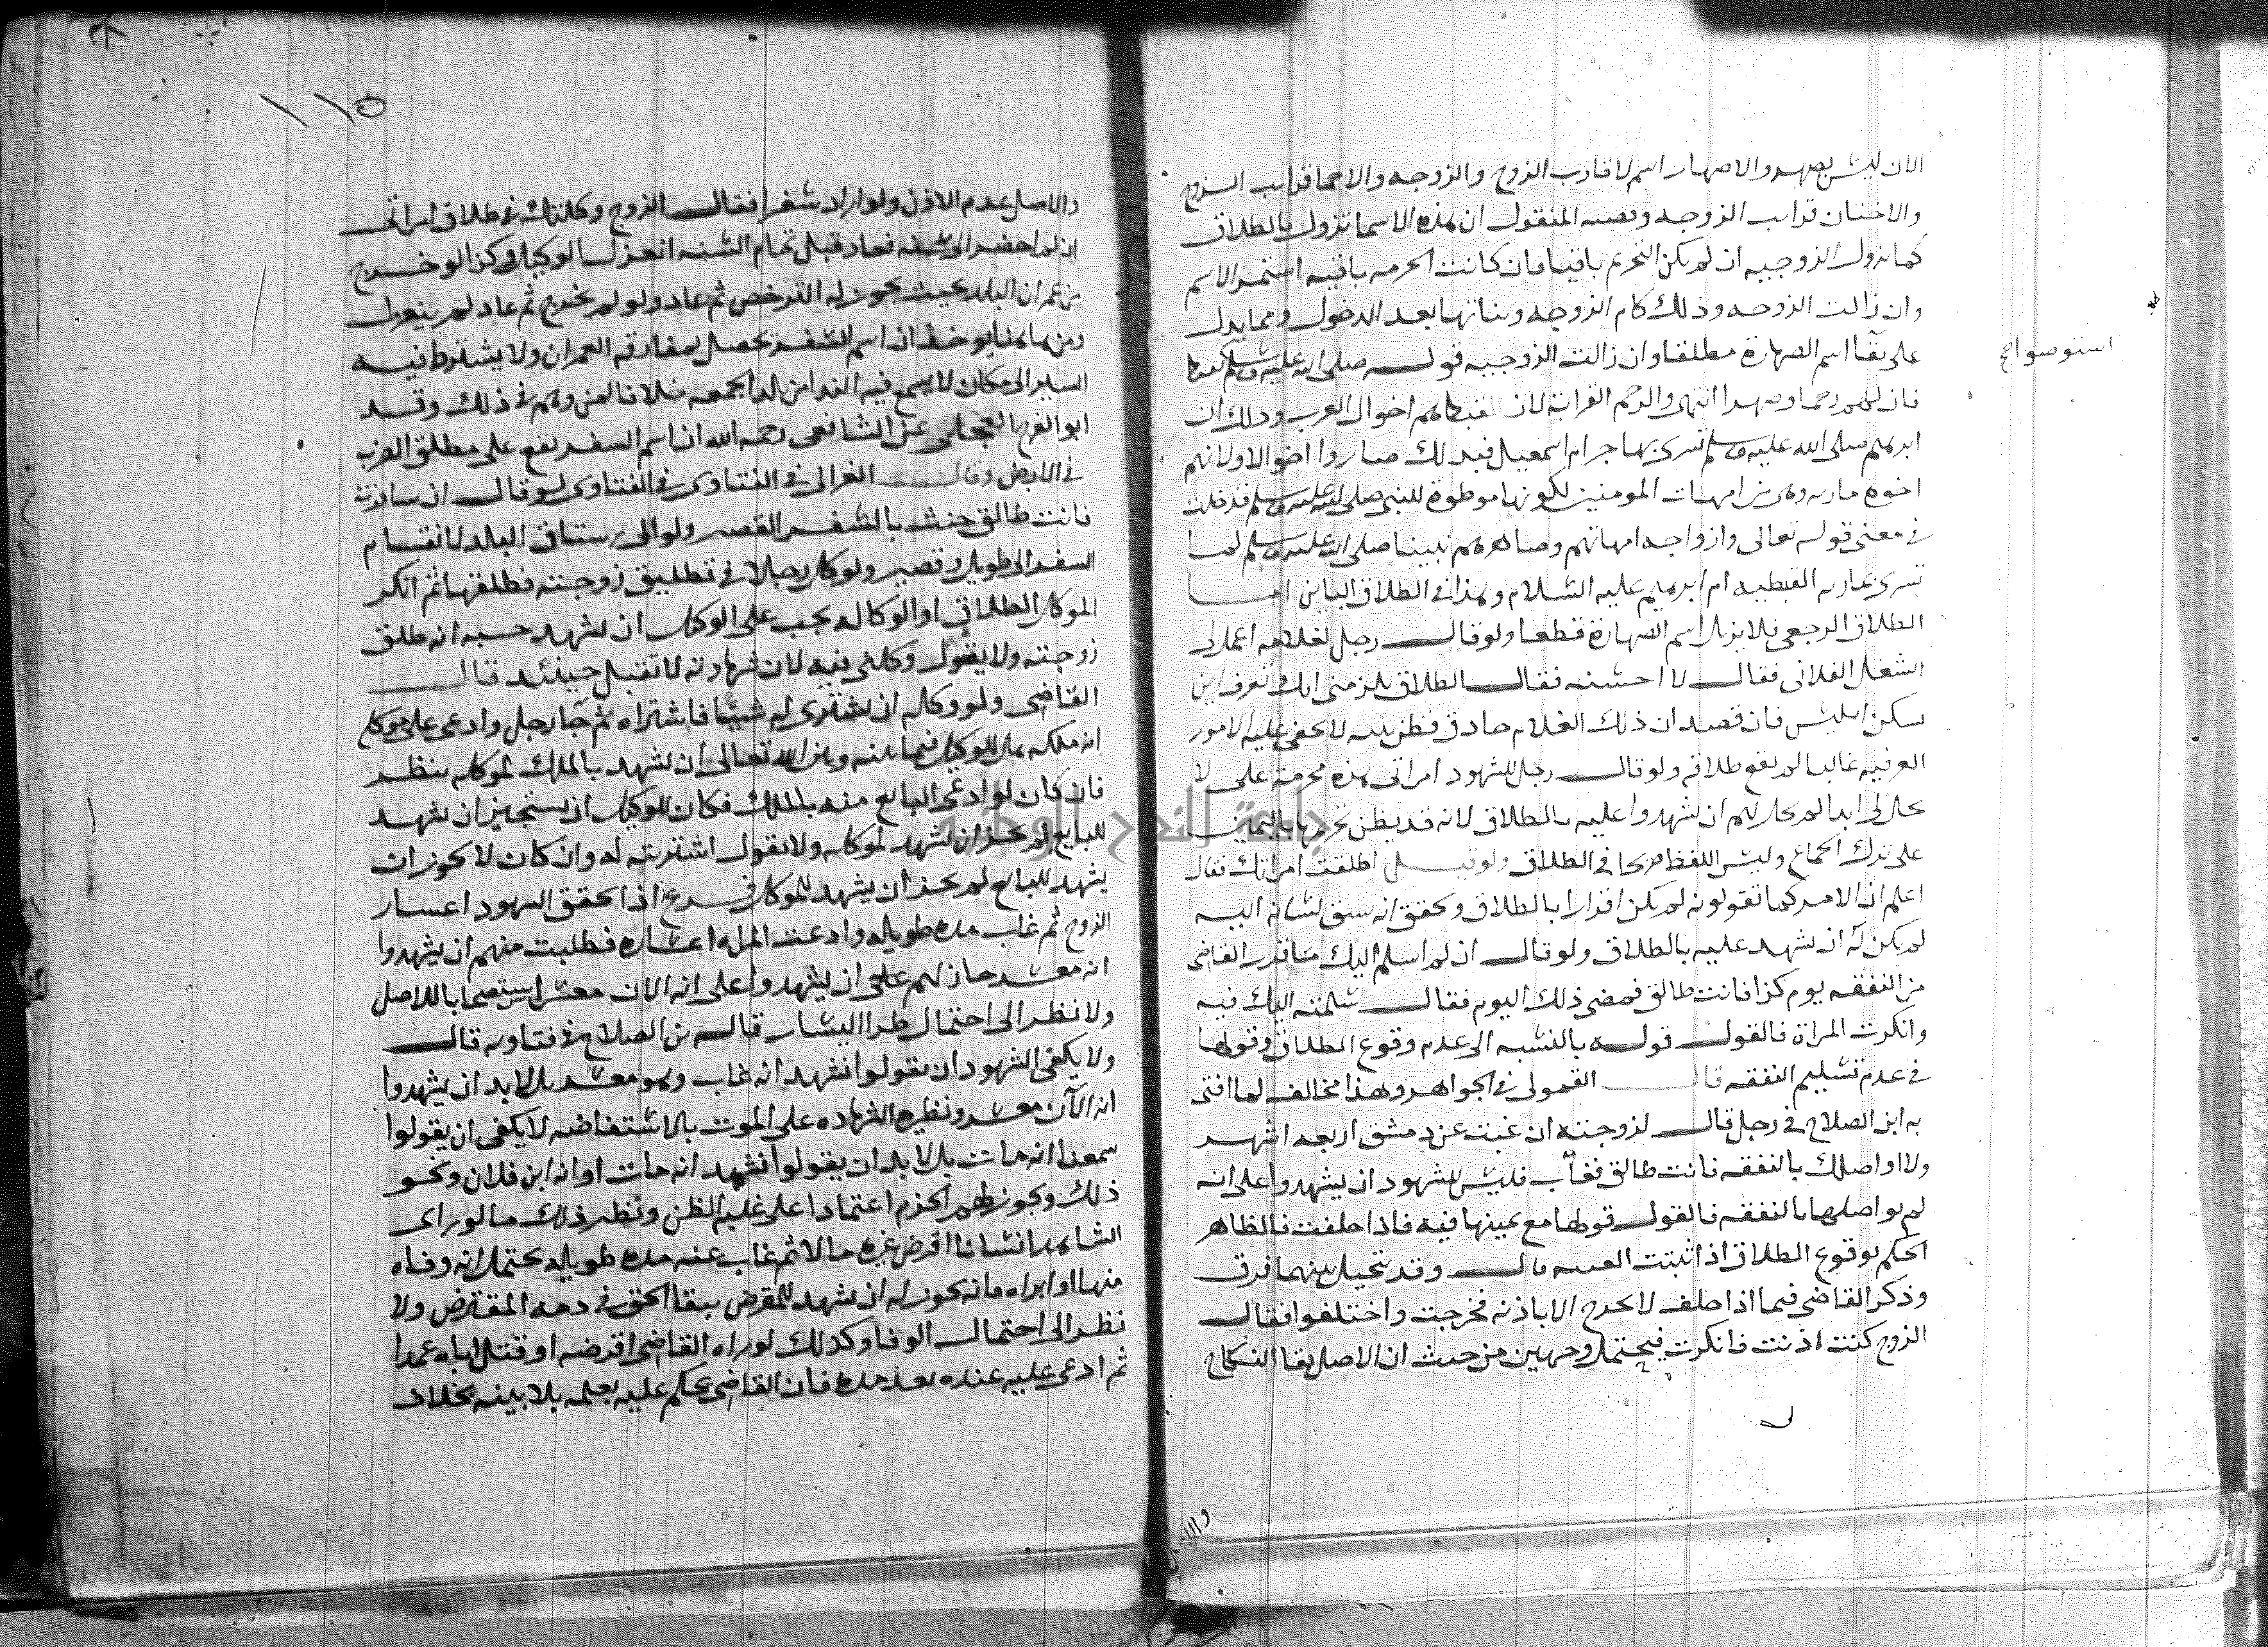 الان ليس بصهر والاصهار اسم لاقارب الزوج والزوجه والاحما قرايب الزوج
والاختان قرايب الزوجه وقضيه المنقول ان هذه الاسما تزول بالطلاق
كما تزول الزوجيه ان لم يكن التحريم باقيا فان كانت الحرمه باقيه استمر الاسم
وان زالت الزوجيه وذلك كام الزوجه وبناتها بعد الدخول ومما يدل
على بقآ اسم الصهارة مطلقا وان زالت الزوجيه قوله صلى الله عليه وسلم
استوصوا
فان لهم رحما وصهرا انتهى والرحم القرابة لان القبط هم اخوال العرب وذلك ان
ابرهيم صلى الله عليه وسلم تسرى بهاجر ام اسمعيل فبذلك صاروا اخوالا ولانهم
اخوة ماريه وهى من امهات المومنين لكونها موطوة للنبى صلى الله عليه وسلم فدخلت
في معنى قوله تعالى وازواجه امهاتهم وصاهرهم نبينا صلى الله عليه وسلم لما
تسرى بماريه القبطيه ام ابرهيم عليه السلام وهذا في الطلاق الباين اما
الطلاق الرجعى فلا يزيل اسم الصهارة قطعا ولو قال رجل لغلامه اعمل لى
الشغل الفلانى فقال لا احسنه فقال الطلاق يلزمنى انك تعرف اين
يسكن ابليس فان قصد ان ذلك الغلام حاذق فطن لا يخفى عليه الامور
العرفيه غالبا لم يقع طلاقه ولو قال رجل للشهود امراتى هذه محرمة على لا
تحل لى ابدا لم يحل لهم ان يشهدوا عليه بالطلاق لانه قد يظن تحريمها باليمين
على ترك الجماع وليس اللفظ صريحا في الطلاق ولو قيل اطلقت امراتك فقال
اعلم ان الامر كما تقولونه لم يكن اقرارا بالطلاق وتحقق انه سبق لسانه اليه
لم يكن له ان يشهد عليه بالطلاق ولو قال ان لم اسلم اليك ما قدر القاضى
من النفقه يوم كذا فانت طالق فمضى ذلك اليوم فقال سلمته اليك فيه
وانكرت المراة فالقول قوله بالنسبه الى عدم وقوع الطلاق وقولها
في عدم تسليم النفقه قال القمولى في الجواهر وهذا مخالف لما افتى
به ابن الصلاح في رجل قال لزوجته ان غبت عن دمشق اربعه اشهر
ولا اواصلك بالنفقه فانت طالق فغاب فليس للشهود ان يشهدوا على انه
لم يواصلها بالنفقه فالقول قولها مع يمينها فيه فاذا حلفت فالظاهر
الحكم بوقوع الطلاق اذا ثبتت الغيبه قال وقد يتخيل بينهما فرق
وذكر القاضى فيما اذا حلف لا تخرج الا باذنه فخرجت واختلفوا فقال
الزوج كنت اذنت فانكرت فيحتمل وجهين من حيث ان الاصل بقا النكاح
والاصل عدم الاذن ولو اراد سفرا فقال الزوج وكلتك في طلاق امراتى
ان لم احضر الى سنه فعاد قبل تمام السنه انعزل الوكيل وكذا لو خرج
من عمران البلد بحيث يجوز له الترخص ثم عاد ولو لم يخرج ثم عاد لم ينعزل
ومن هاهنا يوخذ ان اسم السفر يحصل بمفارقه العمران ولا يشترط فيه
السير الى مكان لا يسمع فيه الندا من بلد الجمعه خلافا لمن وهم في ذلك وقد
ابو الفرج العجلى عن الشافعى رحمه الله ان اسم السفر يقع على مطلق الضرب
في الارض وقال الغزالى في الفتاوى في الفتاوى لو قال ان سافرت
فانت طالق حنث بالسفر القصير ولو الى رستاق البلد لانقسام
السفر الى طويل وقصير ولو وكل رجلا في تطليق زوجته فطلقها ثم انكر
الموكل الطلاق او الوكاله يجب على الوكيل ان يشهد حسبه انه طلق
زوجته ولا يقول وكلنى فيه لان شهادته لا تقبل حينئذ قال
القاضى ولو وكله ان يشترى له شييا فاشتراه ثم جآ رجل وادعى على موكله
انه ملكه هل للوكيل فيما بينه وبين الله تعالى ان يشهد بالملك لموكله ينظر
فان كان لو ادعى البايع منه بالملك فكان للوكيل ان يستجيز ان يشهد
للبايع لم يجز ان يشهد لموكله ولا يقول اشتريته له وان كان لا يجوز ان
يشهد للبايع لم يجز ان يشهد للموكل فرع اذا تحقق الشهود اعسار
الزوج ثم غاب مده طويله وادعت المراه اعساره فطلبت منهم ان يشهدوا
انه معسر جاز لهم على ان يشهدوا على انه الان معسر استصحابا للاصل
ولا نظر الى احتمال طرا اليسار قاله بن الصلاح في فتاويه قال
ولا يكفى الشهود ان يقولوا نشهد انه غاب وهو معسر بل لا بد ان يشهدوا
انه الآن معسر ونظيره الشهاده على الموت بالاستفاضه لا يكفى ان يقولوا
سمعنا انه مات بل لا بد ان يقولوا نشهد انه مات او انه ابن فلان ونحو
ذلك ويجوز لهم الجزم اعتمادا على غلبه الظن ونظير ذلك ما لو راى
الشاهد انسانا اقرض غيره مالا ثم غاب عنه مده طويله يحتمل انه وفاه
منها او ابراه فانه يجوز له ان يشهد للمقرض ببقا الحق في ذمه المقترض ولا
نظر الى احتمال الوفا وكذلك لو راه القاضى اقرضه او قتل اباه عمدا
ثم ادعى عليه عنده بعد مده فان القاضى يحكم عليه بعلمه بلا بينه بخلاف